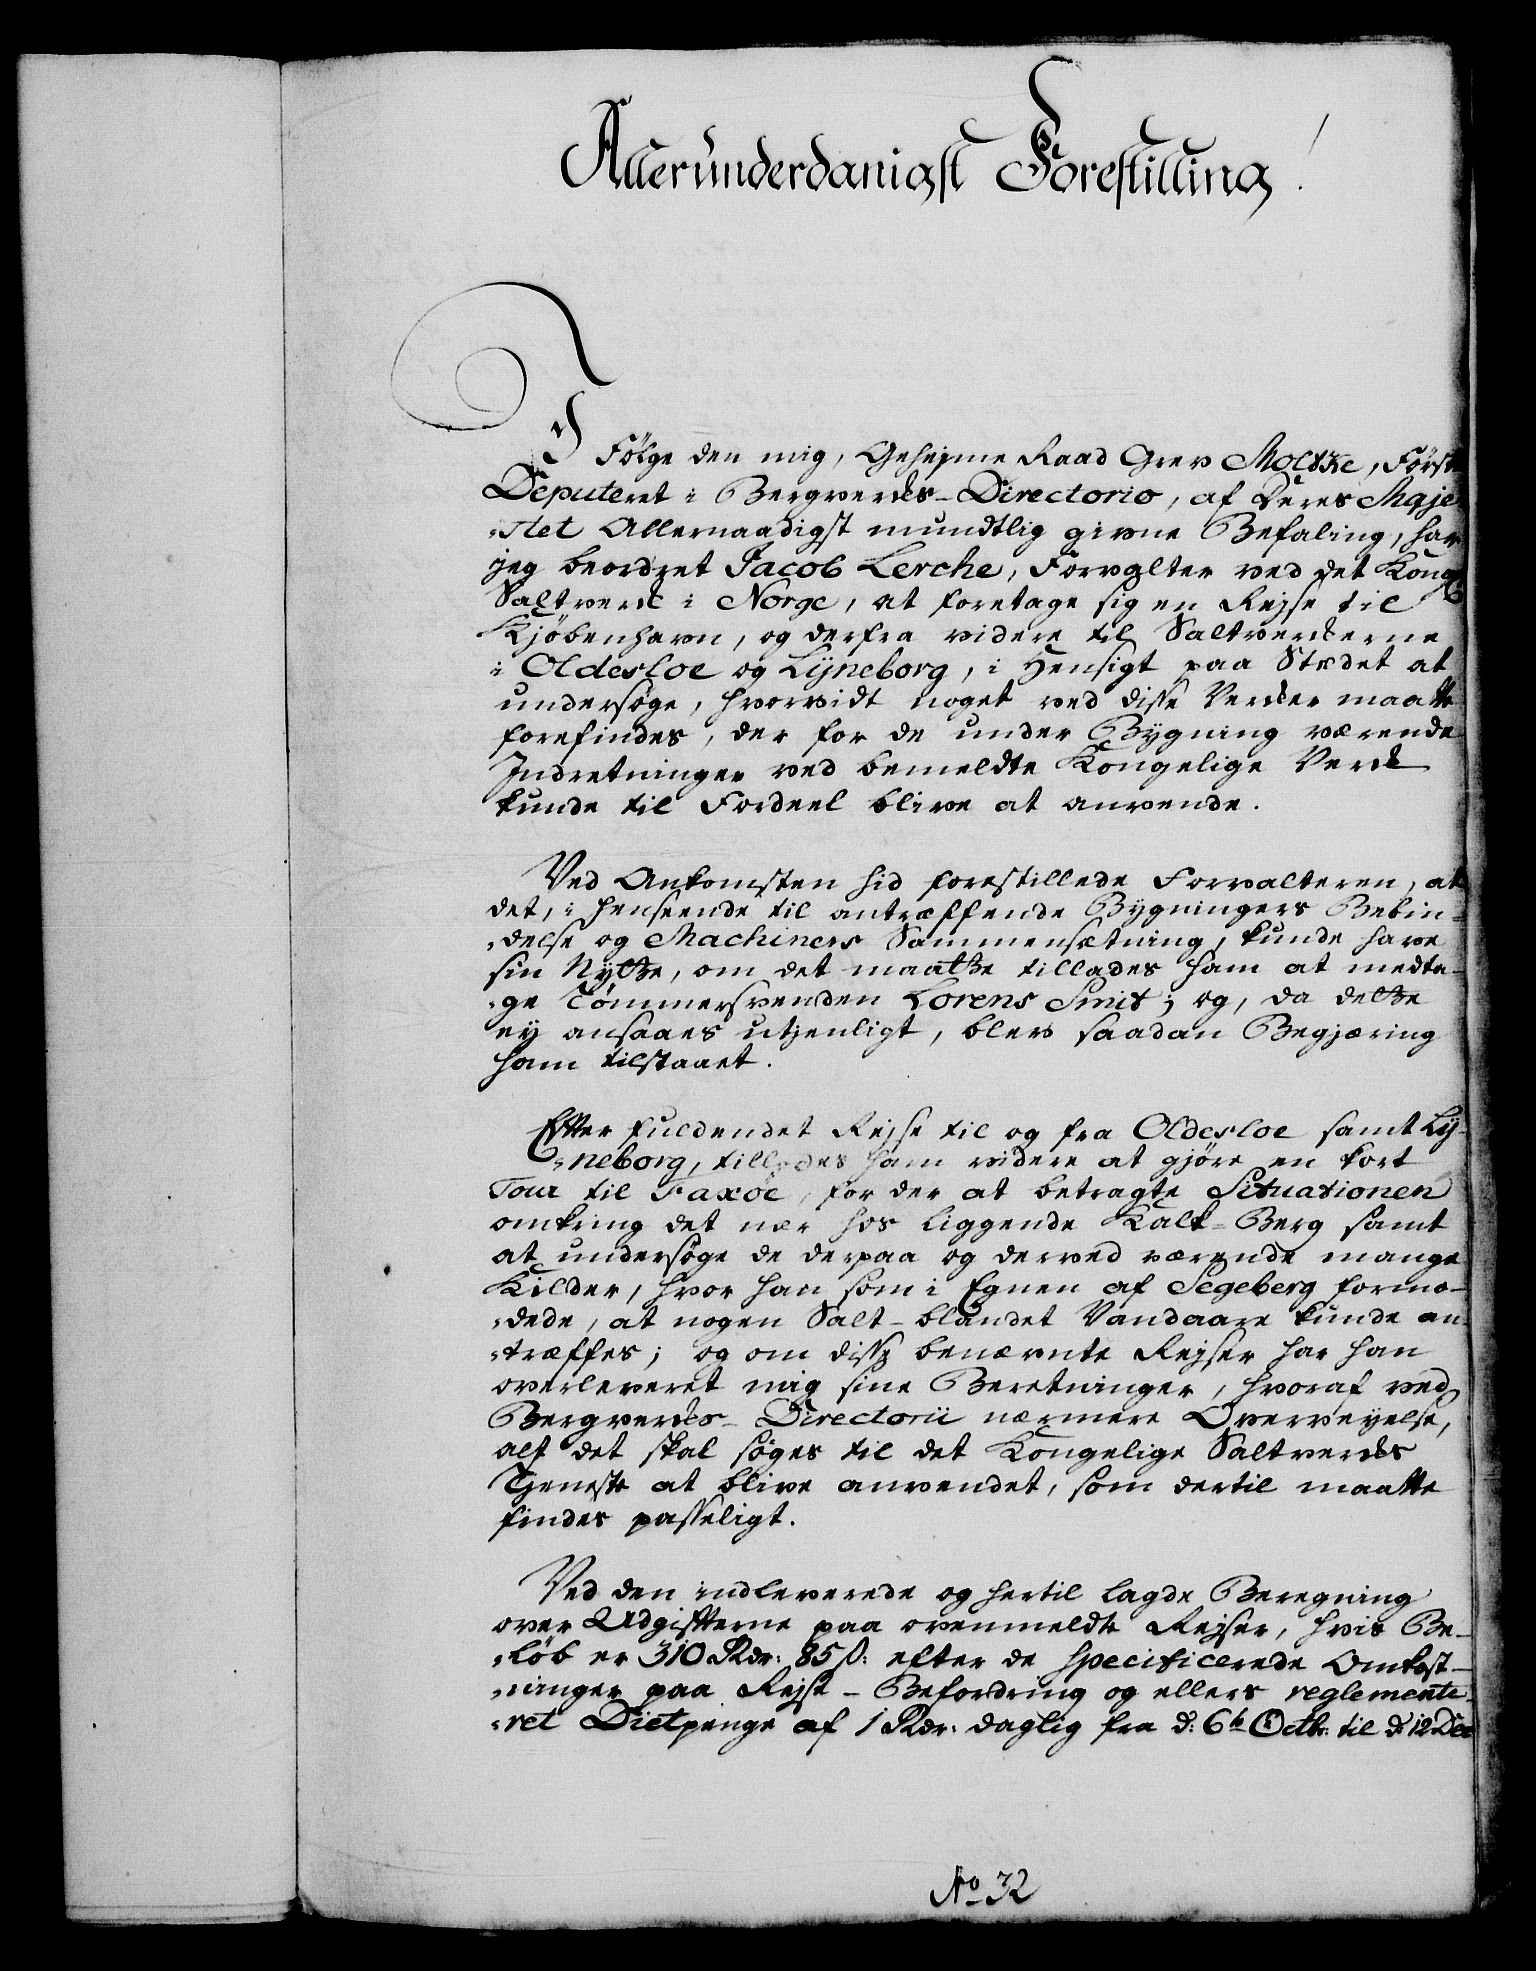 Allerunderdanigst Forestilling!
I Følge den mig, Geheime Raad Grev Moltke, Første
Deputeret i Bergverks-Directorio, af Deres Maje-
-stet Allernaadigst mundtlig givne Befaling, har
jeg beordret Jacob Lerche, Forvalter ved det Kongl:
Saltverk i Norge, at foretage sig en Rejse til
Kjøbenhavn, og derfra videre til Saltverkerne
i Oldesloe og Lÿneborg, i Hensigt paa Stædet at
undersøge, hvorvidt noget ved disse Verker maatte
forefindes, der for de under Bÿgning værende
Indretninger ved bemeldte Kongelige Verk
kunde til Fordeel blive at anvende.
Ved Ankomsten hid forestillede Forvalteren, at
det, i Henseende til antræffende Bÿgningers Bebin-
-delse og Machiners Sammensætning, kunde have
sin Nÿtte, om det maatte tillades ham at medta-
-ge Tømmersvenden Lorens Smit; og, da dette
eÿ ansaaes utjenligt, blev saadan Begjæring
ham tilstaaet.
Efter fuldendet Rejse til og fra Oldesloe samt Lÿ-
-neborg, tillodes ham videre at gjøre en kort
Tour til Faxöe, for der at betragte Situationen
omkring det nær hos liggende Kalk-Berg samt
at undersøge de derpaa og derved værende mange
Kilder, hvor han som i Egnen af Segeberg formo-
-dede, at nogen Salt-blandet Vandaare kunde an-
-træffes; og om disse benævnte Rejser har han
overleveret mig sine Beretninger, hvoraf ved
Bergverks-Directorii nærmere Overveÿelse,
alt det skal søges til det Kongelige Saltverks
Tjeneste at blive anvendet, som dertil maatte
findes passeligt.
Ved den indleverede og hertil lagde Beregning
over Udgifterne paa ovenmeldte Rejser, hvis Be-
-løb er 310 Rdr: 85 ß: efter de specificerede Omkost-
-ninger paa Rejse-Befordring og ellers reglemente-
-ret Dietpenge af 1 Rdr: daglig fra d: 6te Octbr: til d: 12 Dec
No 32